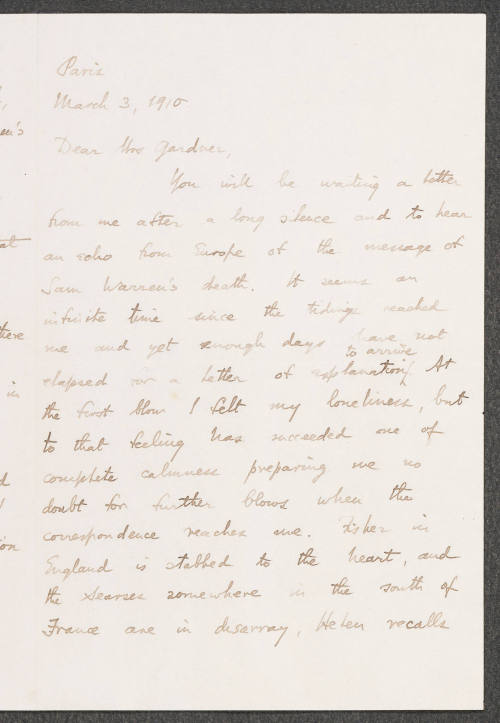 Paris
March 3, 1910
Dear Mrs Gardner,
You will be waiting a letter
from me after a long silence and to hear
an echo from Europe of the message of
Sam Warren's death. It seems an
infinite time since the tidings reached
me and yet enough days have not
elapsed for a letter of explanation to arrive. At
the first blow I felt my loneliness, but
to that feeling has succeeded one of
complete calmness preparing me no
doubt for further blows when the
correspondence reaches me. Fisher in
England is stabbed to the heart, and
the Searses somewhere in the south of
France are in disarray, Helen recalls
en's
at
there
in
d
ion